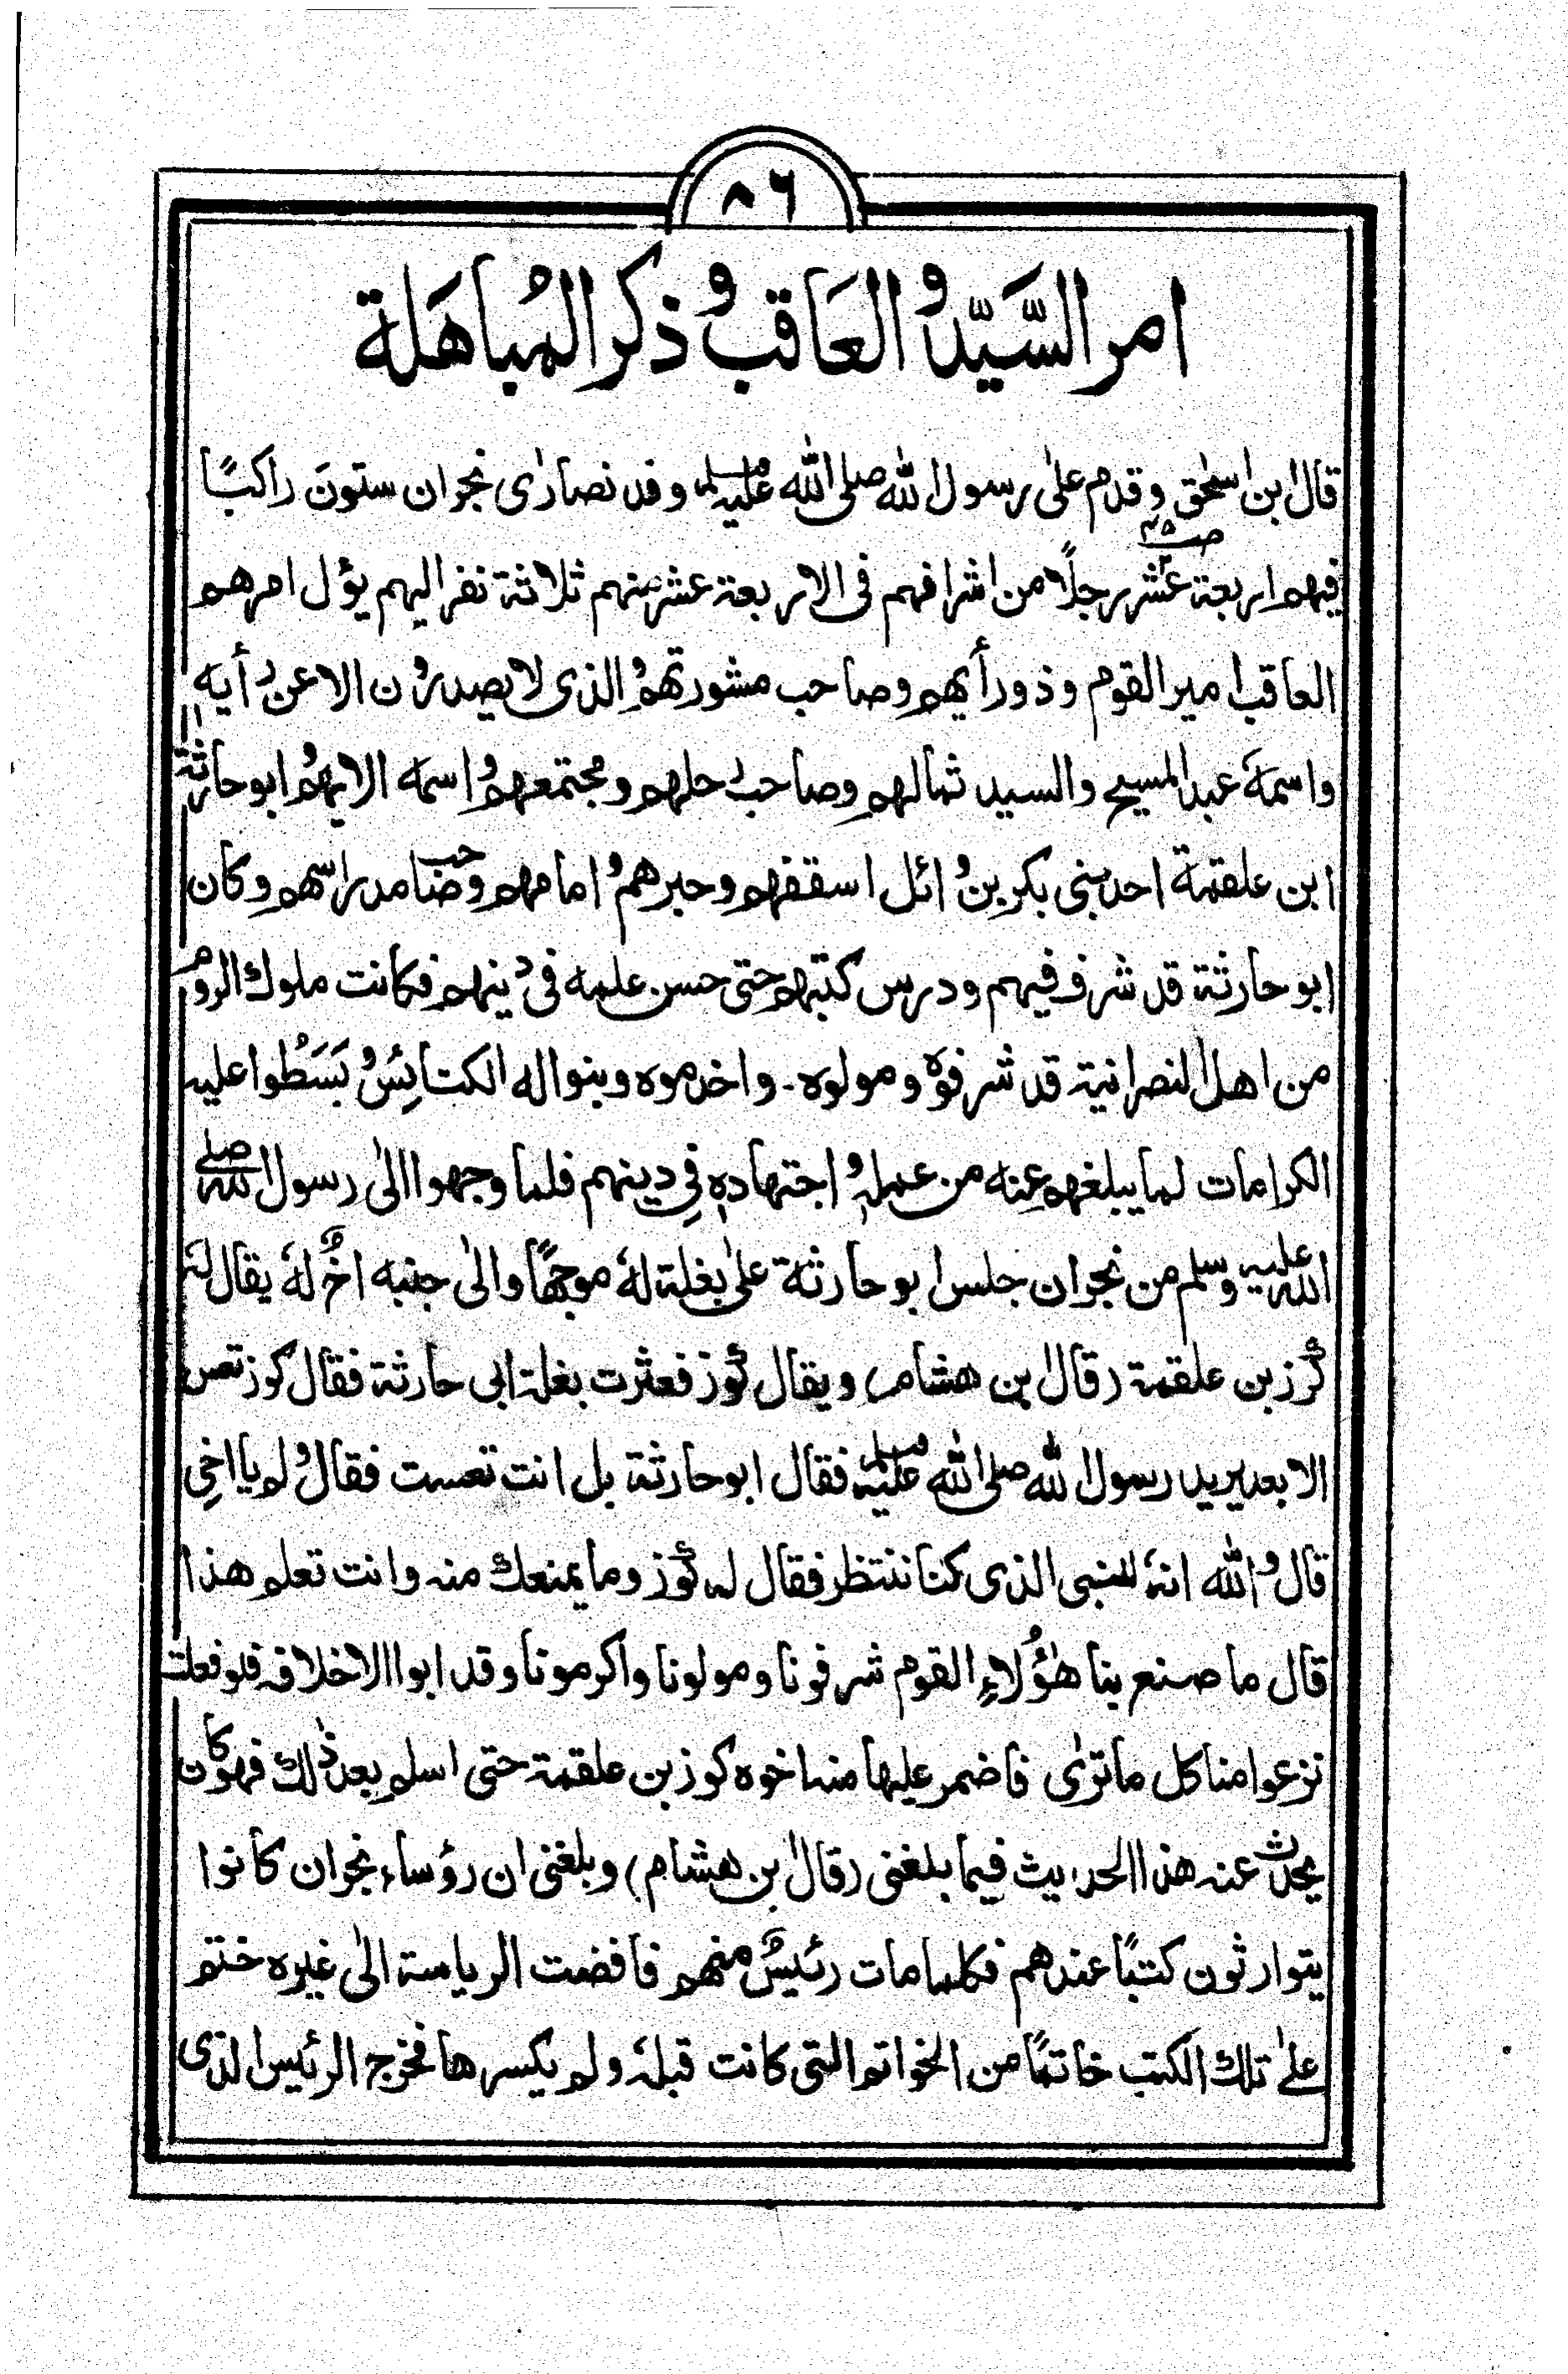 ٨٦
امر السَّيِّد والعَاقب و ذكر المُباهَلة
قال ابن اسحٰق وقدم علٰى رسول الله صلى الله عليه وسلم وفد نصارٰى نجران ستونَ راكبًا
فيهم اربعة عشر رجلًا من اشرافهم فى الاربعة عشر منهم ثلاثة نفر اليهم يؤل امرهم
العاقب امير القوم وذو رأيهم وصاحب مشورتهم والذى لا يصدرون الا عن رأيه
واسمهٗ عبد المسيح والسيد ثمالهم وصاحب رحلهم ومجتمعهم واسمه الايهم وابو حارثة
ابن علقمة احد بنى بكر بن وائل اسقفهم وحبرهم وامامهم وصاحب مدراسهم وكان
ابو حارثة قد شرف فيهم ودرس كتبهم حتى حسن علمه فى دينهم فكانت ملوك الروم
من اهل النصرانية قد شرفوه ومولوه۔ واخدموه وبنوا له الكنائِسُ وبَسَطُوا عليه
الكرامات لما يبلغهم عنه من عمله واجتهادهٖ فِي دينهم فلما وجهوا الىٰ رسول الله صلے
الله عليه وسلم من نجران جلس ابو حارثة علىٰ بغلة لهٗ موجهًا والىٰ جنبه اخٌ لهٗ يقال لهٗ
كُرز بن علقمة (قال ابن هشام) ويقال كُوز فعثرت بغلة ابى حارثة فقال كوز تعس
الابعد يريد رسول الله صلى الله عليه وسلم فقال ابو حارثة بل انت تعست فقال ولم يا اخِي
قال والله انهٗ للنبى الذى كنا ننتظر فقال له كُوز وما يمنعك منه وانت تعلم هذا
قال ما صنع بنا هٰؤُلاءِ القوم شرفونا ومولونا واكرمونا وقد ابوا الا خلافه فلو فعلت
نزعوا منا كل ما ترٰى فاضمر عليها منه اخوه كوز بن علقمة حتى اسلم بعد ذٰلك فهو كان
يحدث عنه هذا الحديث فيما بلغنى (قال ابن هشام) وبلغنى ان رؤساء نجران كانوا
يتوارثون كتبًا عندهم فكلما مات رئيسٌ منهم فافضت الرياسة الىٰ غيره ختم
علىٰ تلك الكتب خاتمًا من الخواتم التى كانت قبلهٗ ولم يكسرها فخرج الرئيس الذى